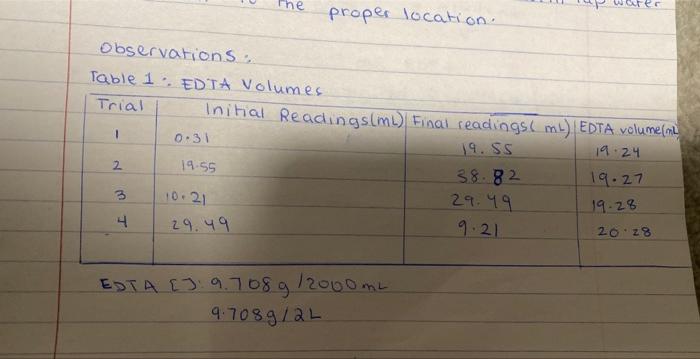 The proper location.
tap water
Observations:
Table 1: EDTA Volumes
Trial Initial Readings(mL) Final readings(mL) EDTA volume(mL
1 0.31 19.55 19.24
2 19.55 38.82 19.27
3 10.21 29.49 19.28
4 29.49 9.21 20.28
EDTA []: 9.708g/2000mL
9.708g/2L